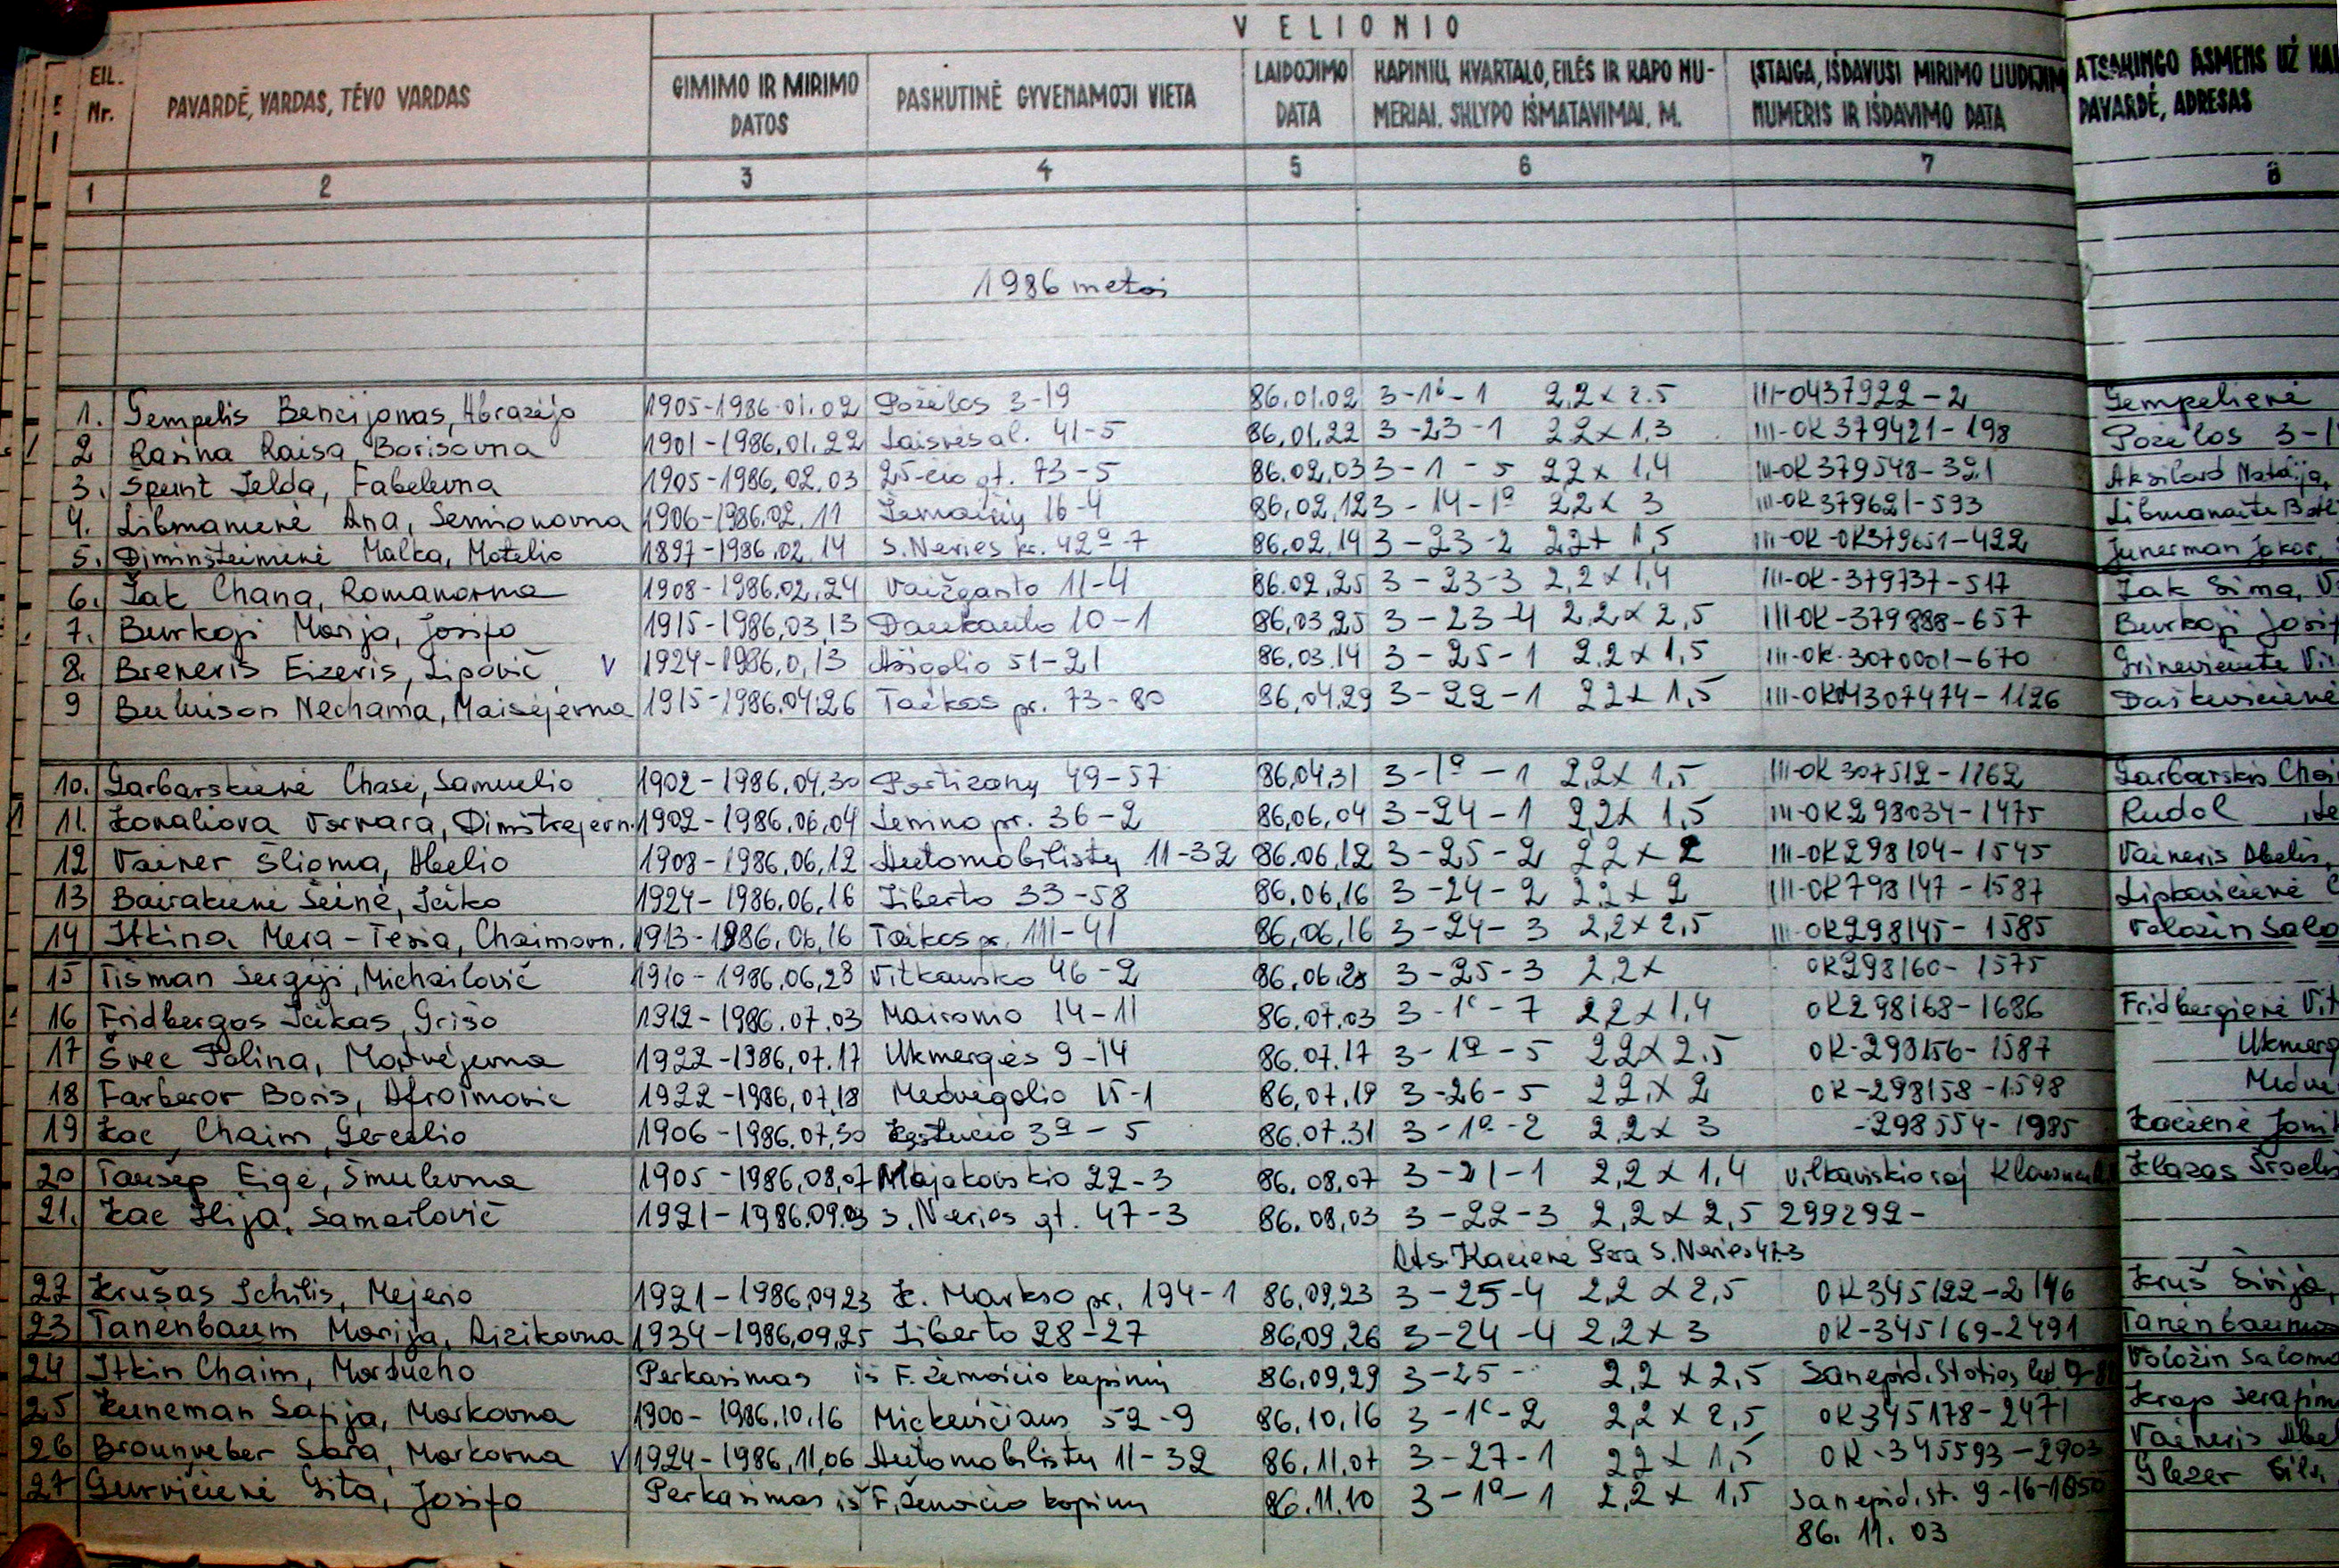 VELIONIO
EIL. Nr. PAVARDĖ, VARDAS, TĖVO VARDAS GIMIMO IR MIRIMO DATOS PASKUTINĖ GYVENAMOJI VIETA LAIDOJIMO DATA KAPINIŲ, KVARTALO, EILĖS IR KAPO NUMERIAI. SKLYPO IŠMATAVIMAI. M. ĮSTAIGA, IŠDAVUSI MIRIMO LIUDIJIM NUMERIS IR IŠDAVIMO DATA ATSAKINGO ASMENS UŽ KA PAVARDĖ, ADRESAS
1 2 3 4 5 6 7 8
1986 metai
1. Gempelis Bencijonas, Abrazėjo 1905-1986.01.02 Požėlos 3-19 86.01.02 3-1b-1 2,2x2.5 III-0437922-2 Gempelienė
2 Rasina Raisa Borisovna 1901-1986.01.22 Laisvės al. 41-5 86.01.22 3-23-1 2.2x1,3 III-OK379421-198 Požėlos 3-1
3. Špunt Zelda, Fabelevna 1905-1986.02.03 25-čio gt. 73-5 86.02.03 3-1-5 2,2x1,4 III-OK379548-321 Aksilord Natalija,
4. Libmanienė Ana, Semionovna 1906-1986.02.11 Žemaičių 16-4 86.02.12 3-14-1a 2,2x3 III-OK379621-593 Libmanaitė
5. Diminšteinienė Malka, Motelio 1897-1986.02.14 S.Neries kr. 42a-7 86.02.14 3-23-2 2,2x1,5 III-OK-OK379651-422 Junerman Jakov,
6. Žak Chana, Romanovna 1908-1986.02.24 Vaižganto 11-4 86.02.25 3-23-3 2,2x1,4 III-OK-379737-517 Žak Sima, V
7. Burkoji Marija, Josifo 1915-1986.03.13 Daukanto 10-1 86.03.25 3-23-4 2,2x2,5 III-OK-379888-657 Burkoji Josif
8. Breneris Eizeris, Lipovič V 1924-1986.0,13 Ašigalio 51-21 86.03.14 3-25-1 2,2x1,5 III-OK-3070001-670 Grinevičiutė
9 Bulvison Nechama, Maisėjevna 1915-1986.04.26 Taikos pr. 73-80 86.04.29 3-22-1 2,2x1,5 1126 Daškevičienė
10. Garbarskienė Chasė, Samuelio 1902-1986.04.30 Partizanų 49-57 86.04.31 3-1a-1 2,2x1,5 III-OK307512-1162 Garbarskis Chai
11. Kovaliova Varvara, Dimitrejevn. 1902-1986.06.04 Lenino pr. 36-2 86.06.04 3-24-1 2,2x1,5 III-OK298034-1475 Rudol
12 Vainer Šlioma, Abelio 1908-1986.06.12 Automobilistų 11-32 86.06.12 3-25-2 2,2x2 III-OK298104-1545 Vaineris Abelis,
13 Bairakienė Šeinė, Icko 1924-1986.06.16 Žiberto 33-58 86.06.16 3-24-2 2,2x2 III-OK798147-1587 Lipkavičienė
14 Itkina Mera-Tesia, Chaimovn. 1913-1986.06.16 Taikos pr. 111-41 86.06.16 3-24-3 2,2x2,5 III-OK298145-1585 Voložin Salo
15 Tišman Sergėji, Michailovič 1910-1986.06.28 Vitkausko 46-2 86.06.28 3-25-3 2,2x OK298160-1575
16 Fridbergas Icikas, Grišo 1912-1986.07.03 Maironio 14-11 86.07.03 3-1c-7 2,2x1,4 OK298168-1686 Fridbergienė Vit
17 Švec Polina, Matvėjevna 1922-1986.07.17 Ukmergės 9-14 86.07.17 3-1a-5 2,2x2.5 OK-298156-1587 Ukmerg
18 Farberov Boris, Afroimovič 1922-1986.07.18 Medvėgalio 15-1 86.07.19 3-26-5 2,2x2 OK-298158-1598 Medvė
19 Kac Chaim, Gercelio 1906-1986.07.30 Kęstučio 3a-5 86.07.31 3-1a-2 2,2x3 -298554-1985 Kacienė
20 Taušep Eigė, Šmulevna 1905-1986.08.07 Majakovskio 22-3 86.08.07 3-21-1 2,2x1,4 Vilkaviškio raj Klazas
21. Kac Ilija, Samoilovič 1921-1986.09.03 S.Neries gt. 47-3 86.08.03 3-22-3 2,2x2,5 299292-
Ats. Kacienė S.Neries 47-3
22 Krušas Ichilis, Mejerio 1921-1986.09.23 K. Markso pr. 194-1 86.09.23 3-25-4 2,2x2,5 OK345122-2146 Kruš Sirija,
23 Tanenbaum Marija, Aizikovna 1934-1986.09.25 Žiberto 28-27 86.09.26 3-24-4 2,2x3 OK-345169-2491 Tanenbaumas
24 Itkin Chaim, Mortucho Perkasimas iš F. Žemaičio kapinių 86.09.29 3-25- 2,2x2,5 Sanepid. Stoties Voložin Saloma
25 Kuneman Safija, Markovna 1900-1986.10.16 Mickevičiaus 52-9 86.10.16 3-1c-2 2,2x2,5 OK345178-2471 Krap Serafim
26 Braunveber Sara, Markovna V 1924-1986.11.06 Automobilistų 11-32 86.11.07 3-27-1 2,2x1,5 OK-345593-2903 Vaineris Abel
27 Gurvičienė Gita, Josifo Perkasimas iš F. Žemaičio kapinių 86.11.10 3-1a-1 2,2x1,5 Sanepid. st. 9-16-1050 Glezer
86.11.03